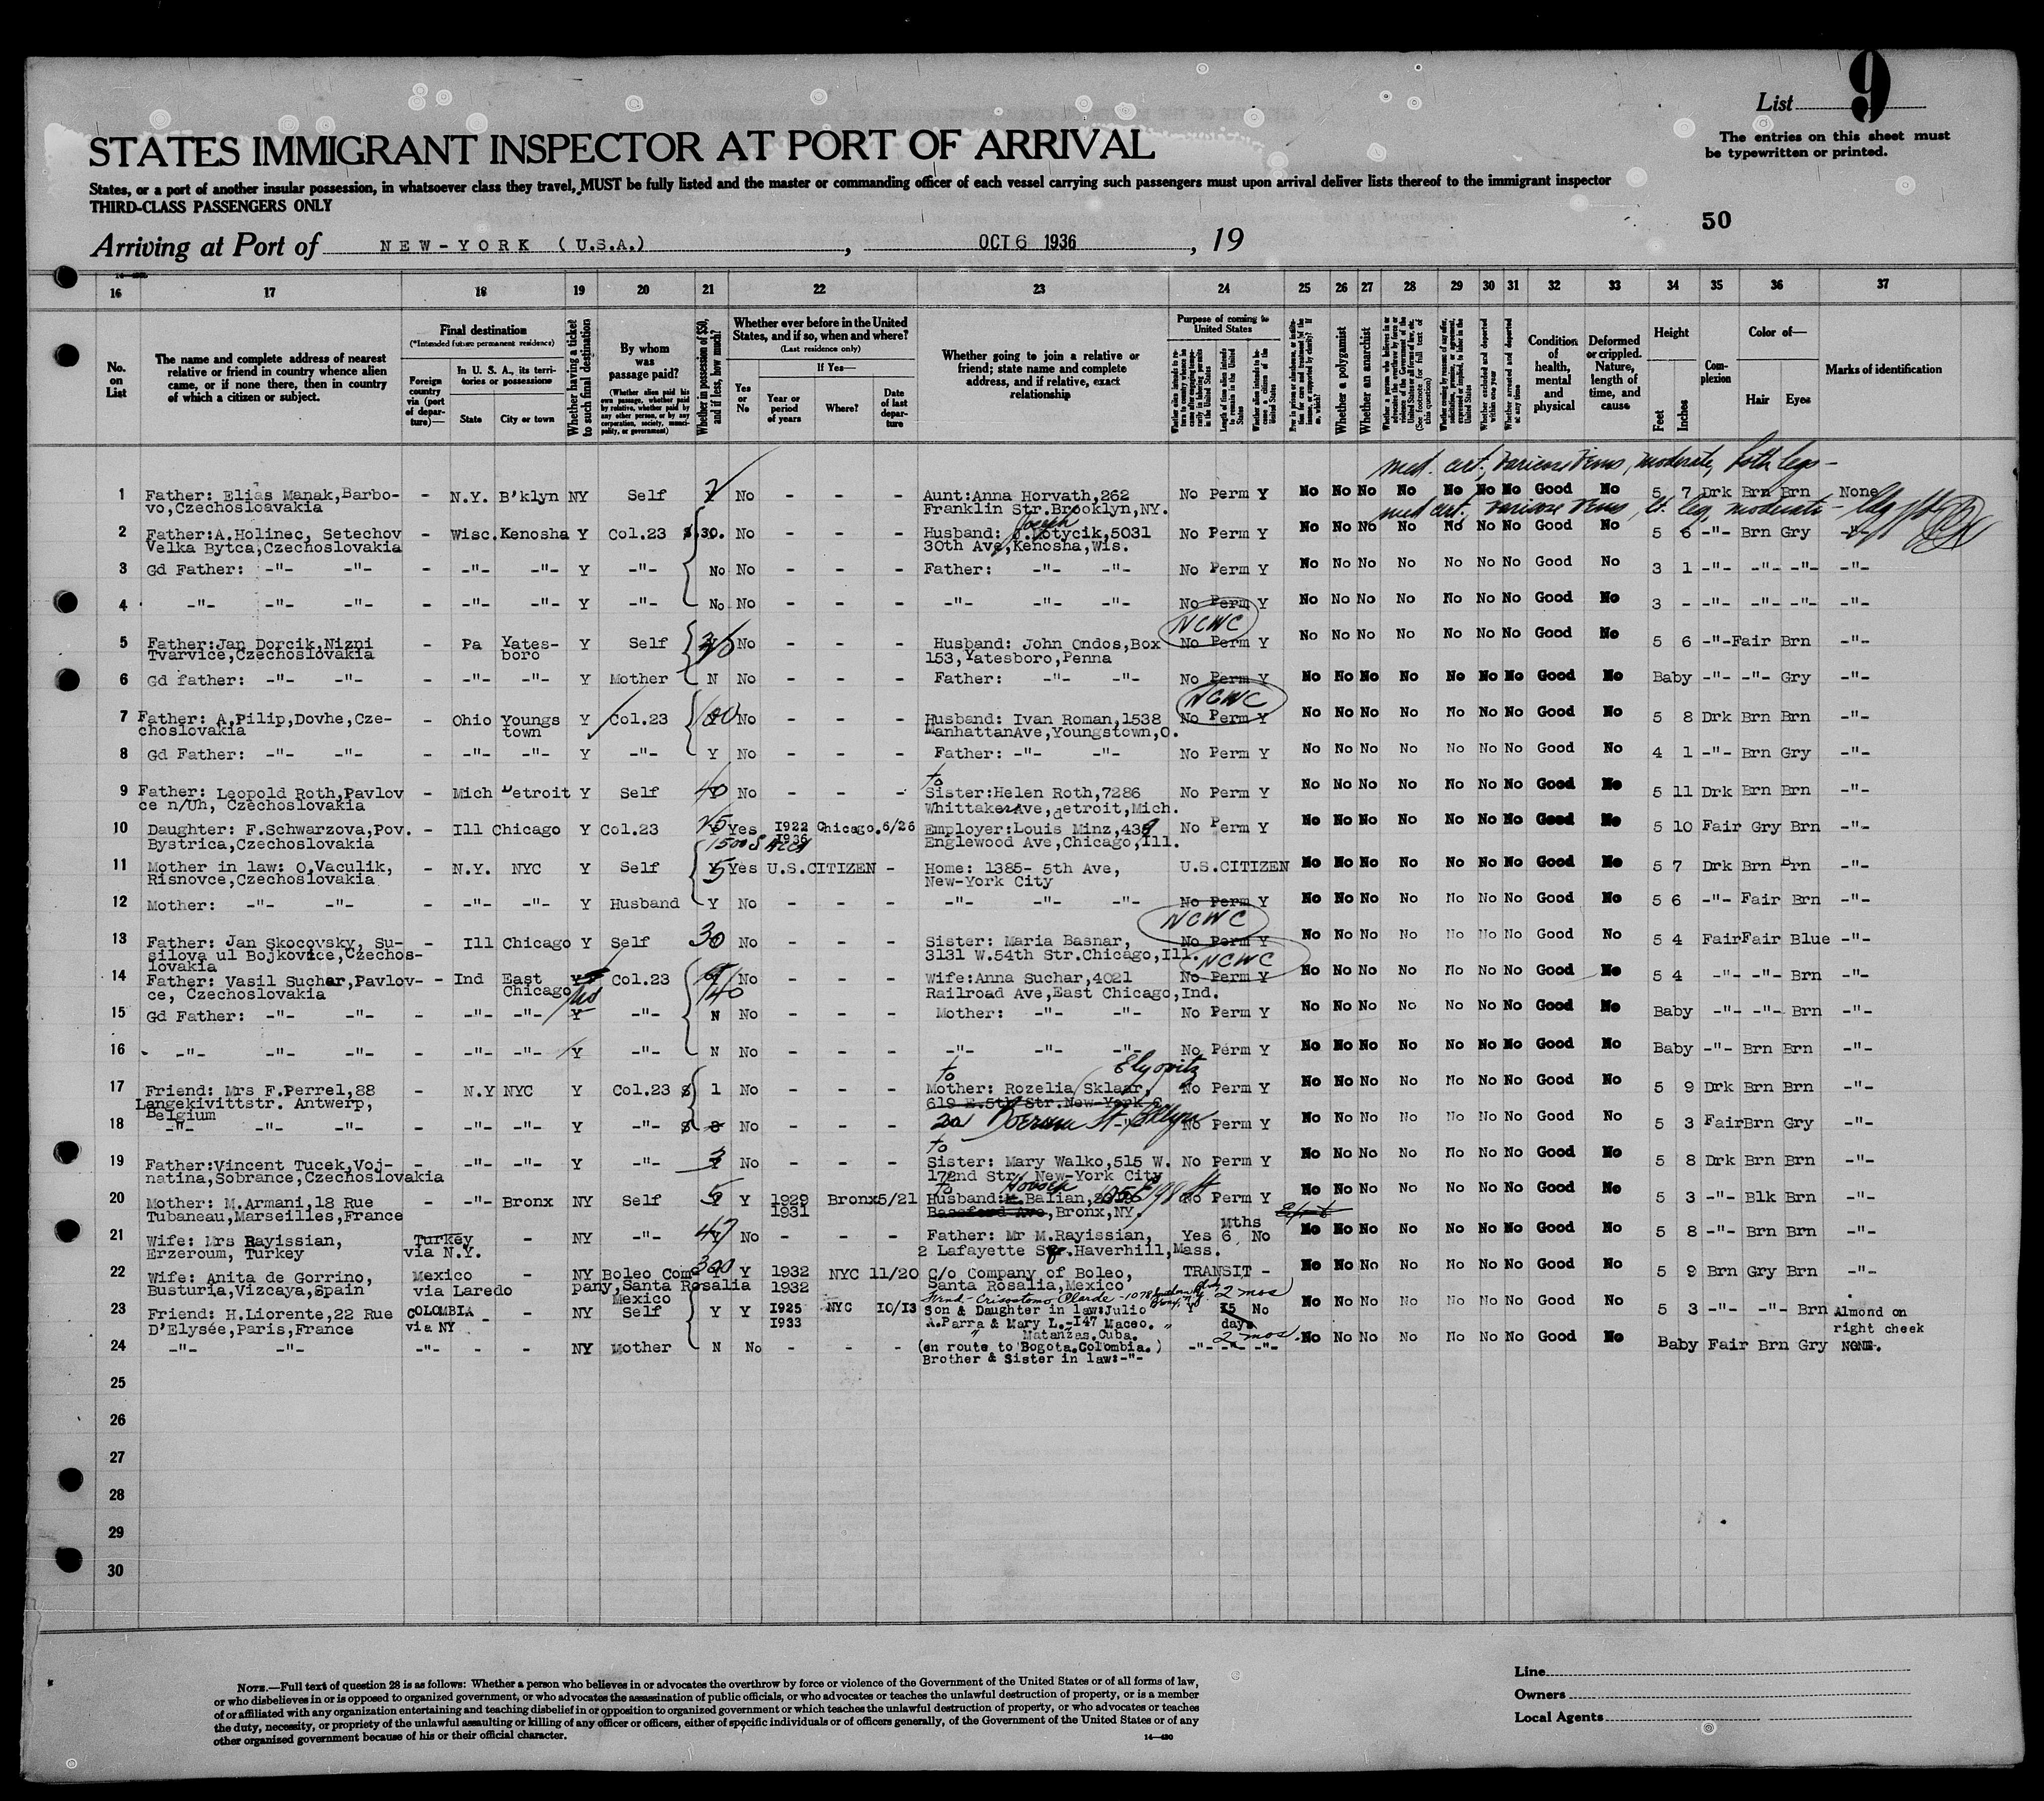 List 9
The entries on this sheet must
be typewritten or printed.
STATES IMMIGRANT INSPECTOR AT PORT OF ARRIVAL
States, or a port of another insular possession, in whatsoever class they travel, MUST be fully listed and the master or commanding officer of each vessel carrying such passengers must upon arrival deliver lists thereof to the immigrant inspector
THIRD-CLASS PASSENGERS ONLY
50
Arriving at Port of NEW-YORK (U.S.A.), OCT 6 1936, 19
16 17 18 19 20 21 22 23 24 25 26 27 28 29 30 31 32 33 34 35 36 37
No. on List
The name and complete address of nearest relative or friend in country whence alien came, or if none there, then in country of which a citizen or subject.
Final destination
(*Intended future permanent residence)
Foreign country via (port of departure)—
In U. S. A., its territories or possessions
State City or town
Whether having a ticket to such final destination
By whom was passage paid?
(Whether alien paid his own passage, whether paid by relative, whether paid by any other person, or by any corporation, society, municipality, or government)
Whether in possession of $50, and if less, how much?
Whether ever before in the United States, and if so, when and where?
(Last residence only)
Yes or No
If Yes—
Year or period of years Where? Date of last departure
Whether going to join a relative or friend; state name and complete address, and if relative, exact relationship
Purpose of coming to United States
Whether a polygamist
Whether an anarchist
Condition of health, mental and physical
Deformed or crippled. Nature, length of time, and cause
Height
Feet Inches
Complexion
Color of—
Hair Eyes
Marks of identification
med. cert. varicose veins, moderate, both legs -
1 Father: Elias Manak,Barbo- - N.Y. B'klyn NY Self No - - - Aunt:Anna Horvath,262 No Perm Y No No No No No No No Good No 5 7 Drk Brn Brn None
vo,Czechosloavakia Franklin Str.Brooklyn,NY.
med cert. varicose veins, lt. leg, moderate -
2 Father:A.Holinec, Setechov - Wisc. Kenosha Y Col.23 $ 30. No - - - Husband: Joseph J.Kotycik,5031 No Perm Y No No No No No No No Good No 5 6 -"- Brn Gry -"-
Velka Bytca,Czechoslovakia 30th Ave,Kenosha,Wis.
3 Gd Father: -"- -"- - -"- -"- Y -"- No No - - - Father: -"- -"- No Perm Y No No No No No No No Good No 3 1 -"- -"- -"- -"-
4 -"- -"- -"- - -"- -"- Y -"- No No - - - -"- -"- -"- No Perm Y No No No No No No No Good No 3 - -"- -"- -"- -"-
NCWC
5 Father:Jan Dorcik,Nizni - Pa Yates- Y Self No - - - Husband: John Ondos,Box No Perm Y No No No No No No No Good No 5 6 -"- Fair Brn -"-
Tvarvice,Czechoslovakia boro 153,Yatesboro,Penna
6 Gd father: -"- -"- - -"- -"- Y Mother N No - - - Father: -"- -"- No Perm Y No No No No No No No Good No Baby -"- -"- Gry -"-
NCWC
7 Father: A.Pilip,Dovhe,Cze- - Ohio Youngs Y Col.23 100 No - - - Husband: Ivan Roman,1538 No Perm Y No No No No No No No Good No 5 8 Drk Brn Brn -"-
choslovakia town ManhattanAve,Youngstown,O.
8 Gd Father: -"- -"- - -"- -"- Y -"- Y No - - - Father: -"- -"- No Perm Y No No No No No No No Good No 4 1 -"- Brn Gry -"-
to
9 Father: Leopold Roth,Pavlov - Mich Detroit Y Self 40 No - - - Sister:Helen Roth,7286 No Perm Y No No No No No No No Good No 5 11 Drk Brn Brn -"-
ce n/Uh, Czechoslovakia WhittakerAve,detroit,Mich.
10 Daughter: F.Schwarzova,Pov. - Ill Chicago Y Col.23 Yes 1922 Chicago. 6/26 Employer:Louis Minz,439 No Perm Y No No No No No No No Good No 5 10 Fair Gry Brn -"-
Bystrica,Czechoslovakia 1936 Englewood Ave,Chicago,Ill.
11 Mother in law: O.Vaculik, - N.Y. NYC Y Self Yes U.S.CITIZEN - Home: 1385- 5th Ave, U.S.CITIZEN No No No No No No No Good No 5 7 Drk Brn Brn -"-
Risnovce,Czechoslovakia New-York City
12 Mother: -"- -"- - -"- -"- Y Husband Y No - - - -"- -"- -"- No Perm Y No No No No No No No Good No 5 6 -"- Fair Brn -"-
NCWC
13 Father: Jan Skocovsky, Su- - Ill Chicago Y Self 30 No - - - Sister: Maria Basnar, No Perm Y No No No No No No No Good No 5 4 Fair Fair Blue -"-
silova ul Bojkovice,Czechos- 3131 W.54th Str.Chicago,Ill.
lovakia NCWC
14 Father: Vasil Suchar,Pavlov- - Ind East Y Col.23 No - - - Wife:Anna Suchar,4021 No Perm Y No No No No No No No Good No 5 4 -"- -"- Brn -"-
ce, Czechoslovakia Chicago 140 Railroad Ave,East Chicago,Ind.
15 Gd Father: -"- -"- - -"- -"- Y -"- N No - - - Mother: -"- -"- No Perm Y No No No No No No No Good No Baby -"- -"- Brn -"-
16 -"- -"- -"- - -"- -"- Y -"- N No - - - -"- -"- -"- No Perm Y No No No No No No No Good No Baby -"- Brn Brn -"-
to
17 Friend: Mrs F.Perrel,88 - N.Y NYC Y Col.23 $ 1 No - - - Mother: Rozelia Sklaar, No Perm Y No No No No No No No Good No 5 9 Drk Brn Brn -"-
Langekivittstr. Antwerp, 619 E.5th Str.New-York C
Belgium
18 -"- -"- -"- - -"- -"- Y -"- $ No - - - No Perm Y No No No No No No No Good No 5 3 Fair Brn Gry -"-
to
19 Father:Vincent Tucek,Voj- - -"- -"- Y -"- No - - - Sister: Mary Walko,515 W. No Perm Y No No No No No No No Good No 5 8 Drk Brn Brn -"-
natina,Sobrance,Czechoslovakia 172nd Str. New-York City
to
20 Mother: M.Armani,18 Rue - -"- Bronx NY Self Y 1929 Bronx 5/21 Husband:M.Balian, No Perm Y No No No No No No No Good No 5 3 -"- Blk Brn -"-
Tubaneau,Marseilles,France 1931 Bassford Ave,Bronx,NY.
Mths
21 Wife: Mrs Rayissian, Turkey - NY -"- 47 No - - - Father: Mr M.Rayissian, Yes 6 No No No No No No No No Good No 5 8 -"- Brn Brn -"-
Erzeroum, Turkey via N.Y. 2 Lafayette Sqr.Haverhill,Mass.
22 Wife: Anita de Gorrino, Mexico - NY Boleo Com- 300 Y 1932 NYC 11/20 C/o Company of Boleo, TRANSIT - No No No No No No No Good No 5 9 Brn Gry Brn -"-
Busturia,Vizcaya,Spain via Laredo pany,Santa Rosalia 1932 Santa Rosalia,Mexico
Mexico 2 mos
23 Friend: H.Liorente,22 Rue COLOMBIA - NY Self Y Y 1925 NYC 10/13 Son & Daughter in law:Julio 15 No No No No No No No No Good No 5 3 -"- -"- Brn Almond on
D'Elysée,Paris,France via NY 1933 A.Parra & Mary L.-147 Maceo. days right cheek
" Matanzas.Cuba. 2 mos.
24 -"- -"- -"- - - NY Mother N No - - - (en route to Bogota.Colombia.) -"- -"- -"- No No No No No No No Good No Baby Fair Brn Gry NONE.
Brother & Sister in law:-"-
25
26
27
28
29
30
NOTE.—Full text of question 28 is as follows: Whether a person who believes in or advocates the overthrow by force or violence of the Government of the United States or of all forms of law,
or who disbelieves in or is opposed to organized government, or who advocates the assassination of public officials, or who advocates or teaches the unlawful destruction of property, or is a member
of or affiliated with any organization entertaining and teaching disbelief in or opposition to organized government or which teaches the unlawful destruction of property, or who advocates or teaches
the duty, necessity, or propriety of the unlawful assaulting or killing of any officer or officers, either of specific individuals or of officers generally, of the Government of the United States or of any
other organized government because of his or their official character.
14—430
Line
Owners
Local Agents